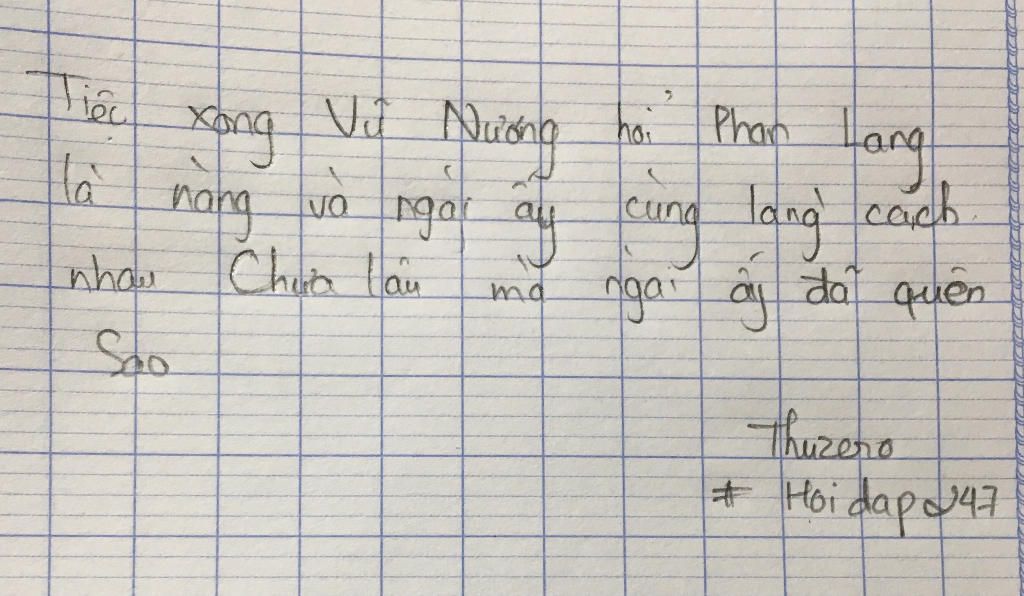 Tiệc xong Vũ Nương hỏi Phan Lang
là nàng và ngài ấy cùng làng cách
nhau Chưa lâu mà ngài ấy đã quên
Sao
Thuzero
# Hoidap247